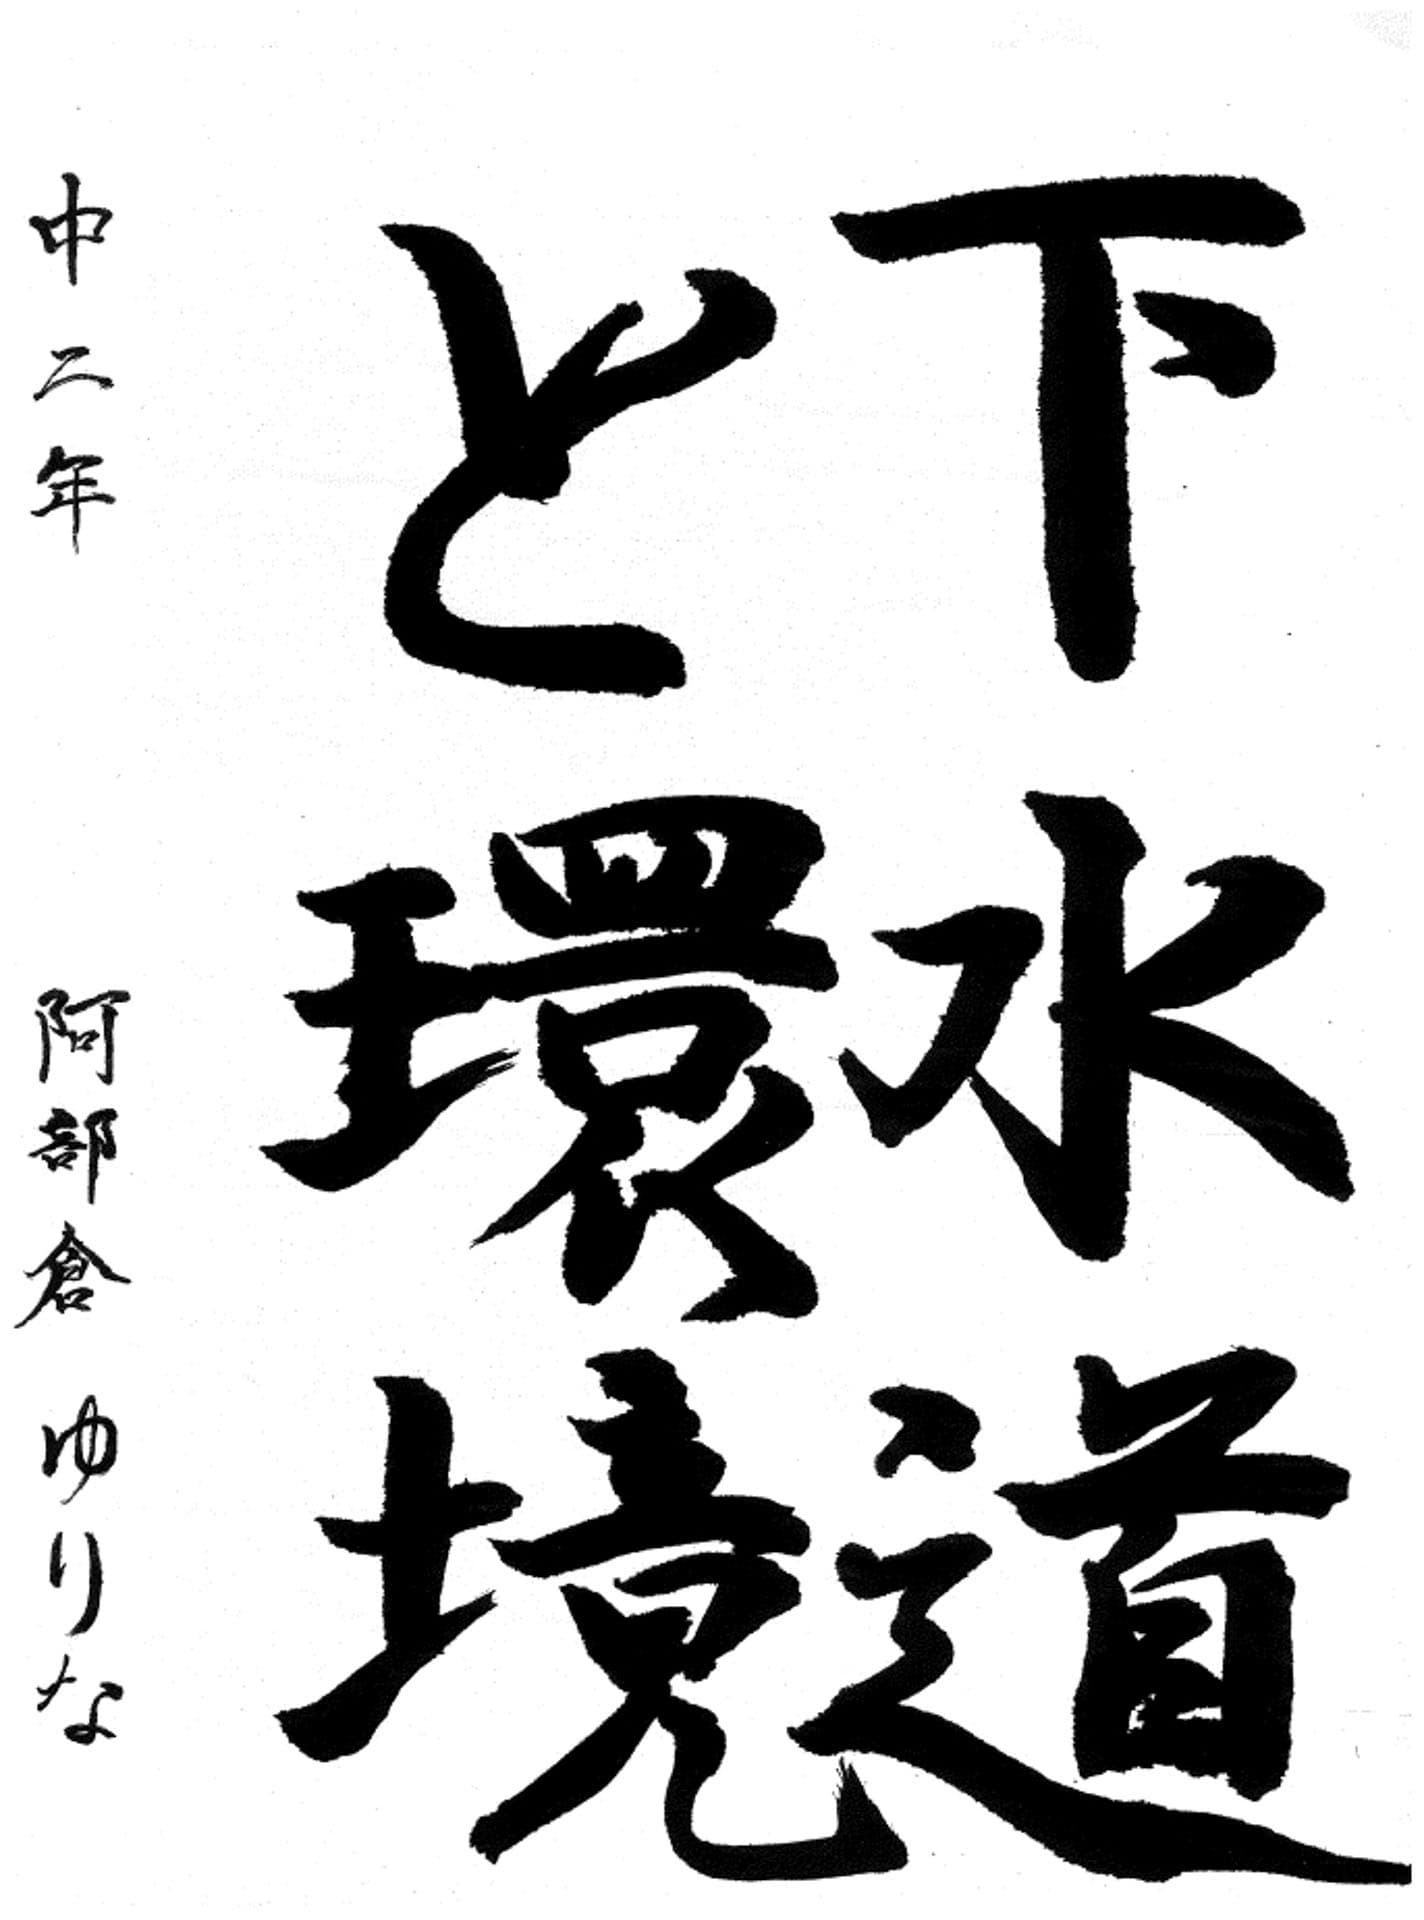 下水道
と環境
中二年 阿部倉ゆりな